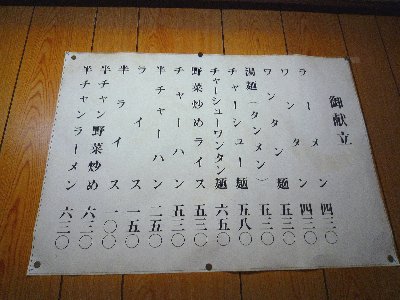 御献立
ラーメン 四三〇
ワンタン 四三〇
ワンタン麺 五三〇
湯麺(タンメン) 五三〇
チャーシュー麺 五八〇
チャーシューワンタン麺 六五〇
野菜炒めライス 五三〇
チャーハン 五三〇
半チャーハン 二五〇
ライス 一五〇
半ライス 一〇〇
半チャン野菜炒め 六三〇
半チャンラーメン 六三〇